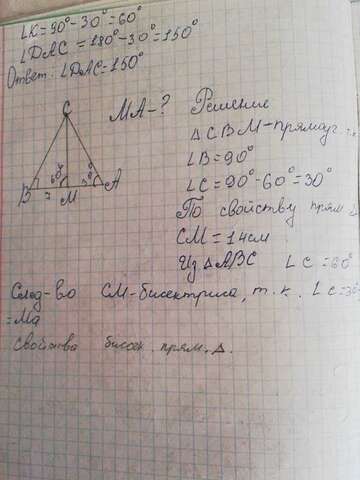 ∠K=90°-30°=60°
∠DAC=180°-30°=150°
Ответ: ∠DAC=150°
MA-? Решение
C
△CBM-прямоуг.
∠B=90°
∠C=90°-60°=30°
B 7 60° M A
По свойству прям
CM=14см
Из △ABC ∠C=60°
След-во CM-биссектриса, т.к. ∠C=30
=Ma
свойства бисек. прям. △.